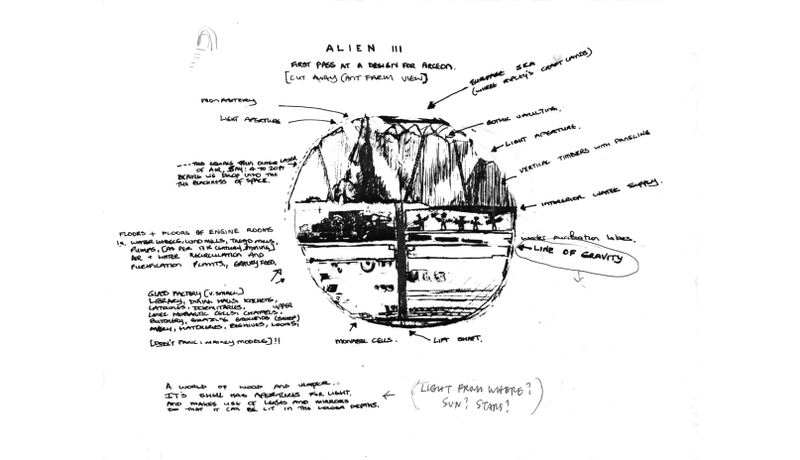 ALIEN III
FIRST PASS AT A DESIGN FOR ARCEON.
[CUT AWAY (ANT FARM VIEW]
SURFACE SEA
(WHERE RIPLEY'S CRAFT LANDS)
MONASTERY
LIGHT APERTURE
GOTHIC VAULTING.
LIGHT APERTURE.
VERTICAL TIMBERS WITH PANELING
THIN OUTER LAYER
OF AIR, SAY: 6 TO 20FT
BEFORE WE DROP INTO THE
THE BLACKNESS OF SPACE.
INTERIOR WATER SUPPLY.
FLOORS + FLOORS OF ENGINE ROOMS
WATER WHEELS, WIND MILLS, TREAD MILLS,
PUMPS, [AS PER 17th CENTURY
AIR + WATER RECIRCULATION AND
PURIFICATION PLANTS, GRAVITY FEED,
WATER PURIFICATION LAKES.
LINE OF GRAVITY
GLASS FACTORY [V. SMALL]
LIBRARY, DINING HALLS, KITCHENS,
LATRINES, DORMITARIES, UPPER
LOWER MONASTIC CELLS, CHAPELS,
BUTCHERY, GRAZING GROUNDS (SHEEP)
HATCHERIES, BEEHIVES, LOOMS,
[DON'T PANIC: MAINLY MODELS]!!
MONASTIC CELLS.
LIFT SHAFT.
A WORLD OF WOOD AND WATER..
IT'S SHELL HAS APERTURES FOR LIGHT,
AND MAKES USE OF LENSES AND MIRRORS
SO THAT IT CAN BE LIT IN THE LOWER DEPTHS.
(LIGHT FROM WHERE?
SUN? STARS?)